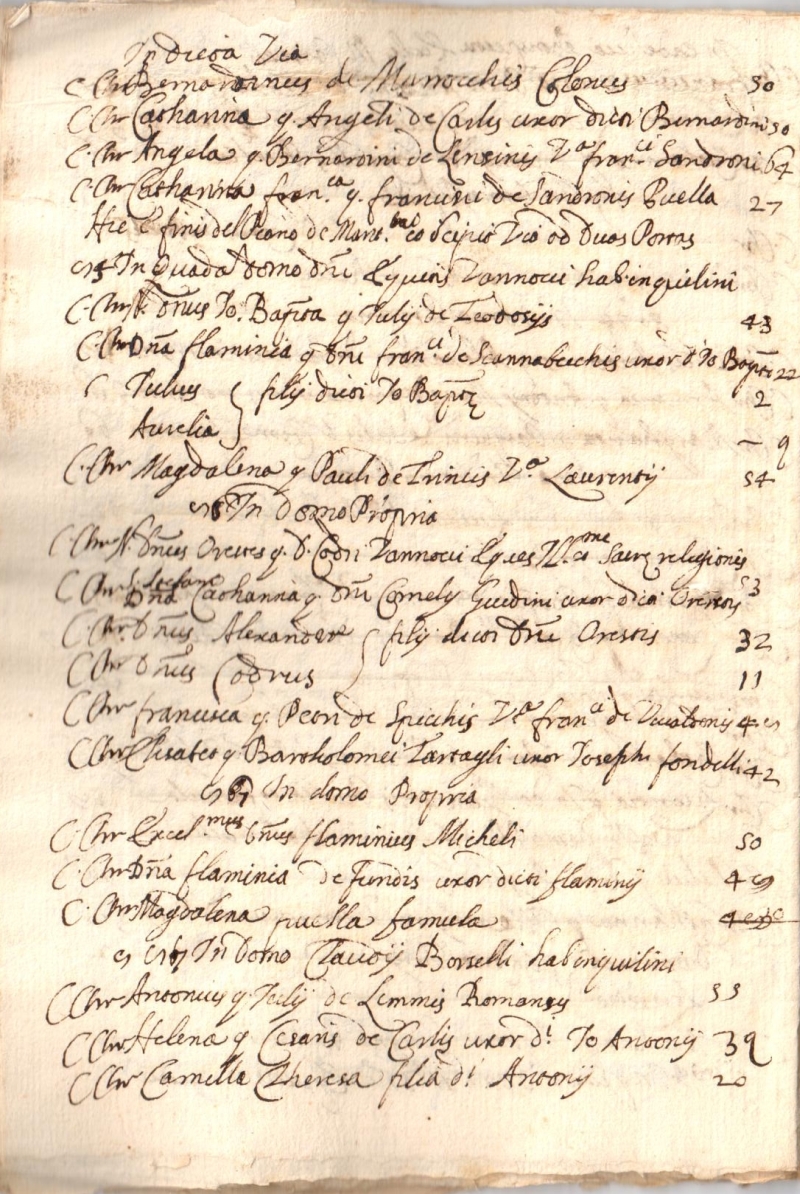 In dicta Via
C. Chr Bernardinus de Marrocchis Colonus 50
C. Chr Catharina q. Angeli de Carlis uxor dicti Bernardini 50
C. Chr Angela q. Bernardini de Lensinis Va fran.ci Sandroni 64
C. Chr Catharina fran.ca q. francisci de Sandronis Puella 27
Hic è finis del Piano de Mant. co Incipit Via ad Duas Portas
In Quadã domo dñi Equitis Vannocci hab inquilini
C. Chr N. dñus Io. Bapta q Iulij de Teodosijs 43
C. Chr Dña flaminia q dñi fran.ci de Scannabecchis uxor d Io Bapte 22
C Iulius } filij dicti Io Bapte 2
Aurelia } – 9
C. Chr Magdalena q Pauli de Trincis Va Laurentij 54
In Domo Propria
C. Chr N. Dñus Orestes q. D. Codri Vannocci Eques Ill. Sacre religionis
S. Stefani 53
C. Chr Dña Catharina q. dñi Cornelij Guidini uxor dicti Orestis
C. Chr. Dñus Alexander } filij dicti Dñi Orestis 32
C. Chr Dñus Codrus } 11
C. Chr francisca q. Petri de Specchis Va fran.ci de
C. Chr Elisabet q. Bartholomei Tartagli uxor Ioseph fondelli 42
In domo Propria
C. Chr Excel.mus Dñus flaminius Micheli 50
C. Chr Dña flaminia de Fundis uxor dicti flaminij 49
C. Chr Magdalena puella famula
In Domo Claudij Borselli hab inquilini
C. Chr Antonius q Iulij de Lemmis Romanus 55
C. Chr Helena q Cesaris de Carlis uxor d.i Io Antonij 39
C. Chr Camilla Theresa filia d.i Antonij 20